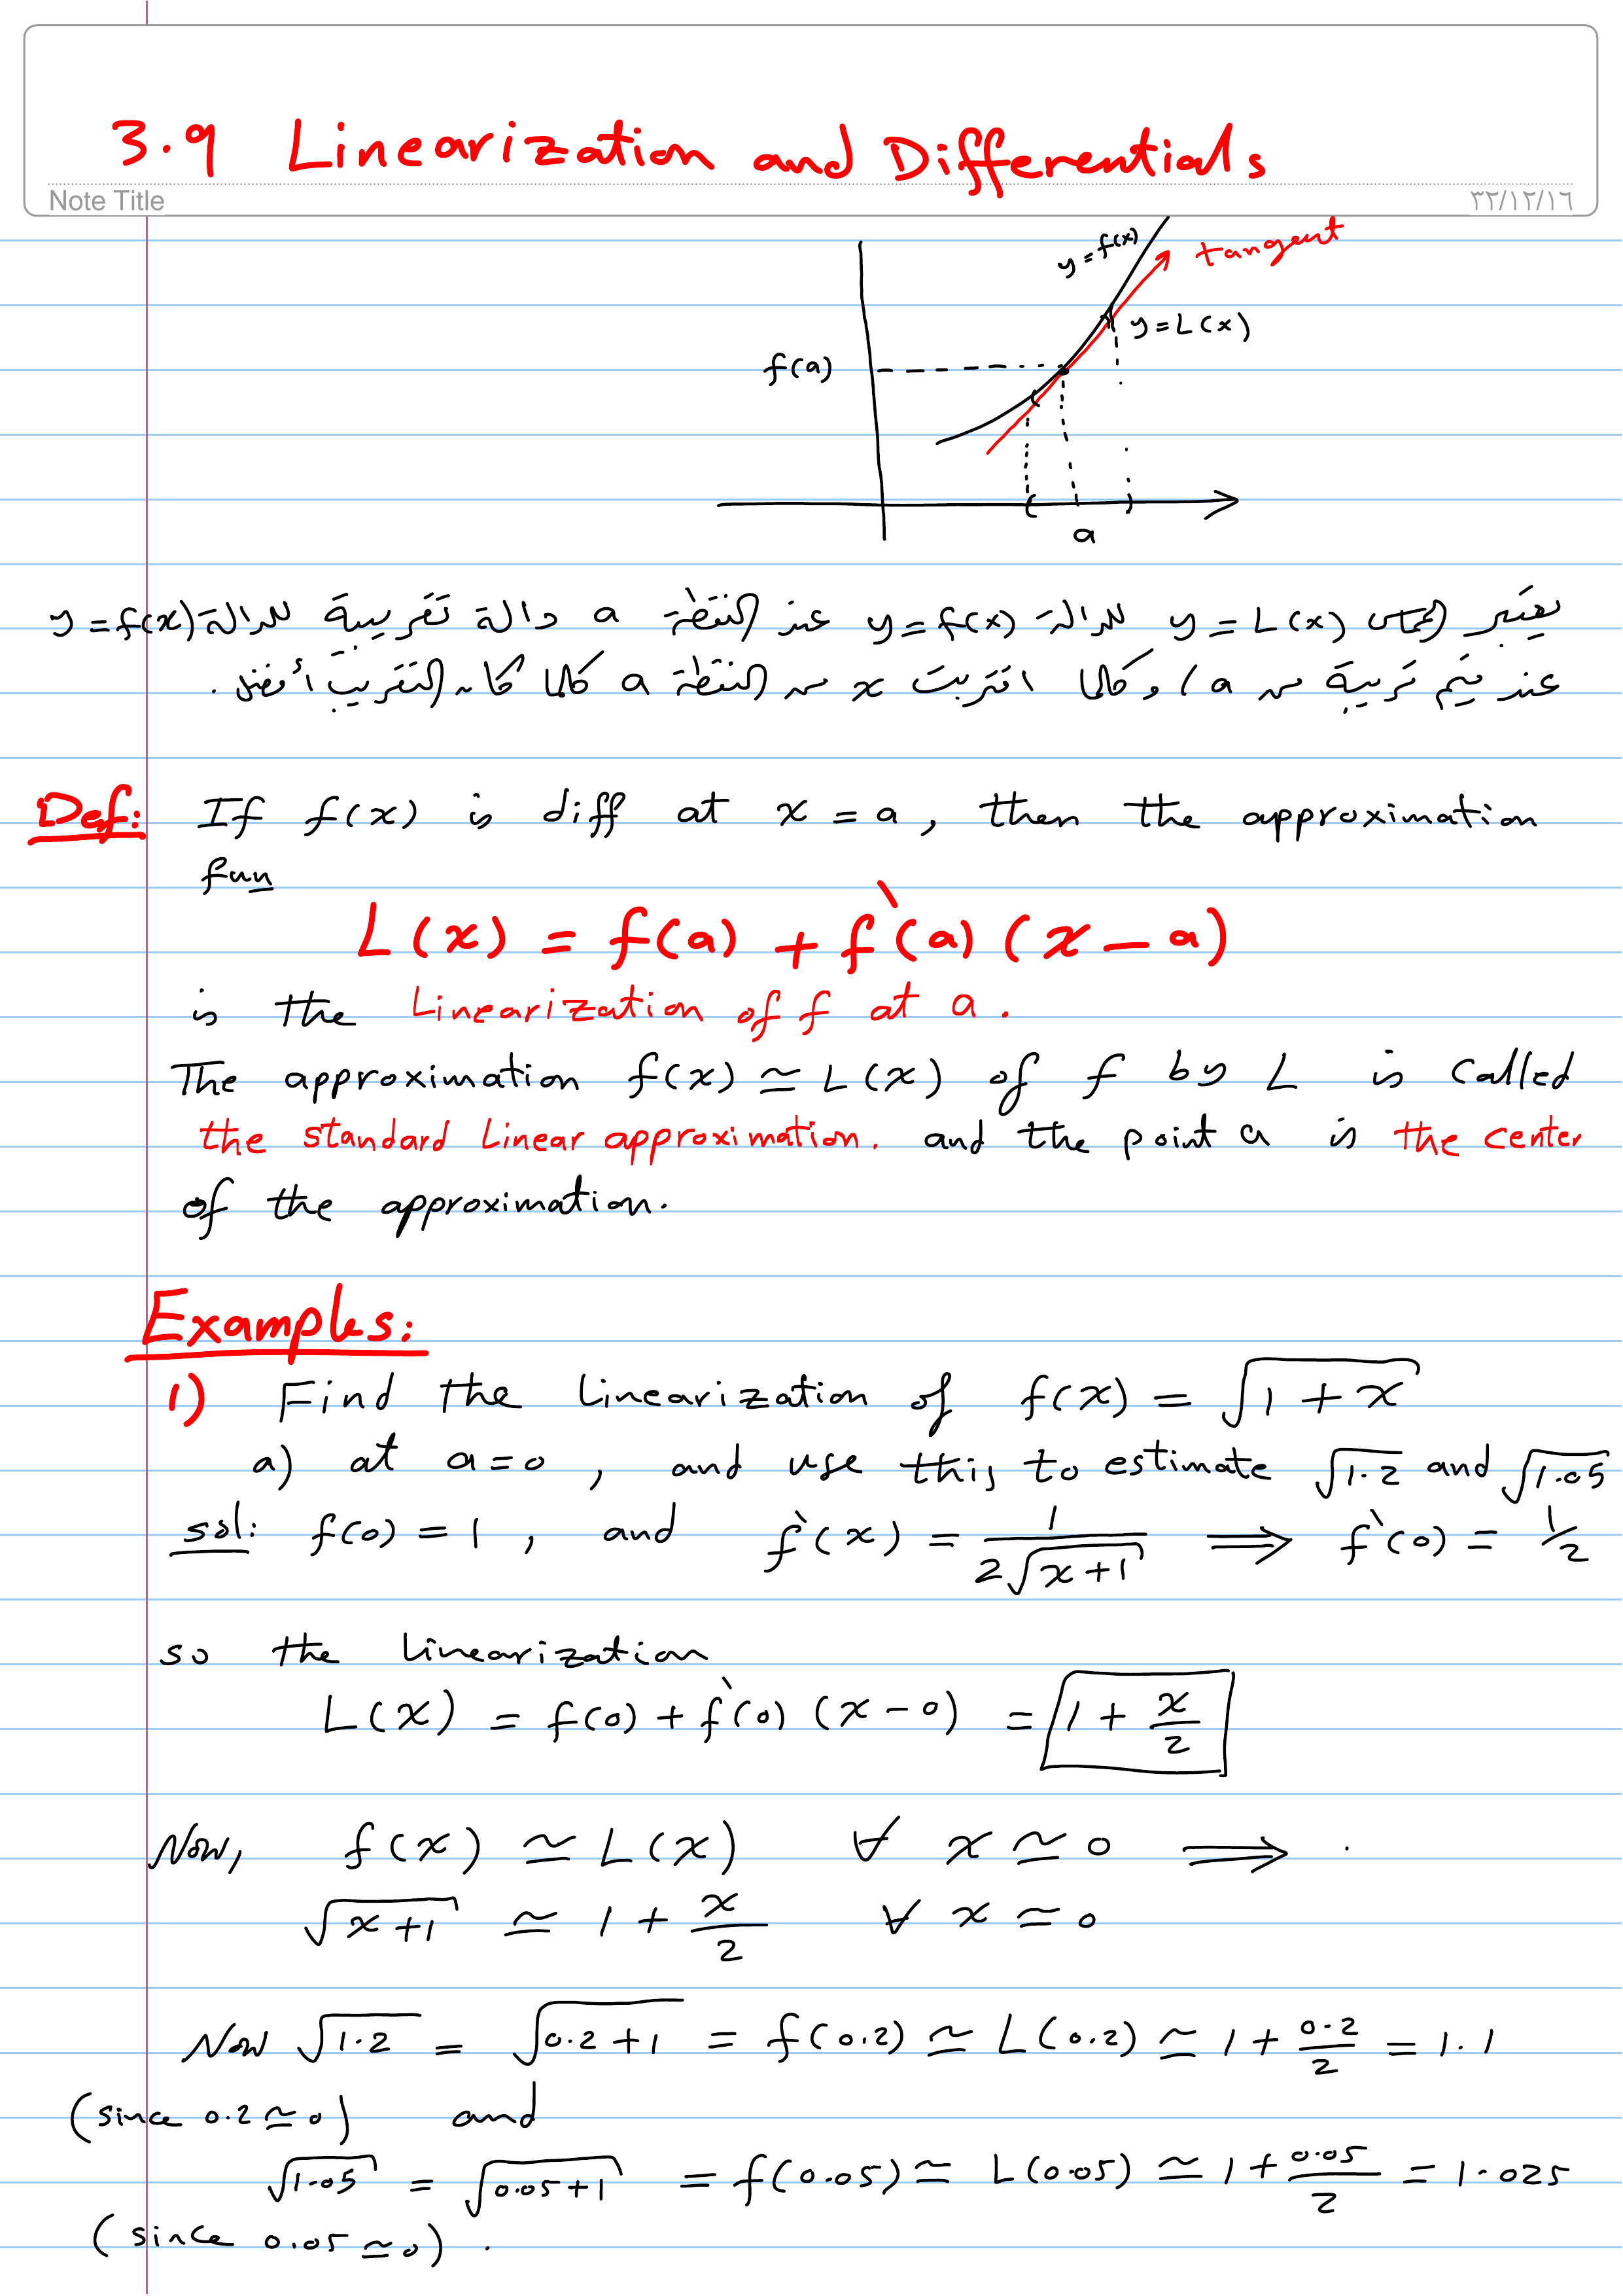 3.9 Linearization and Differentials
Note Title
٣٢/١٢/١٦
y = f(x)
tangent
y = L(x)
f(a)
a
يعتبر المماس y = L(x) للدالة y = f(x) عند النقطة a دالة تقريبية للدالة y = f(x)
عند قيم قريبة من a، وكلما اقتربت x من النقطة a كلما كان التقريب أفضل.
Def: If f(x) is diff at x = a, then the approximation
fun
L(x) = f(a) + f`(a) (x - a)
is the Linearization of f at a.
The approximation f(x) ≃ L(x) of f by L is called
the standard Linear approximation. and the point a is the center
of the approximation.
Examples:
1) Find the linearization of f(x) = √(1 + x)
a) at a = 0, and use this to estimate √1.2 and √1.05
sol: f(0) = 1, and f`(x) = 1/(2√(x+1)) ⟹ f`(0) = 1/2
so the linearization
L(x) = f(0) + f`(0) (x - 0) = 1 + x/2
Now, f(x) ≃ L(x) ∀ x ≃ 0 ⟹ .
√(x+1) ≃ 1 + x/2 ∀ x ≃ 0
Now √1.2 = √(0.2+1) = f(0.2) ≃ L(0.2) ≃ 1 + 0.2/2 = 1.1
(since 0.2 ≃ 0) and
√1.05 = √(0.05+1) = f(0.05) ≃ L(0.05) ≃ 1 + 0.05/2 = 1.025
(since 0.05 ≃ 0).